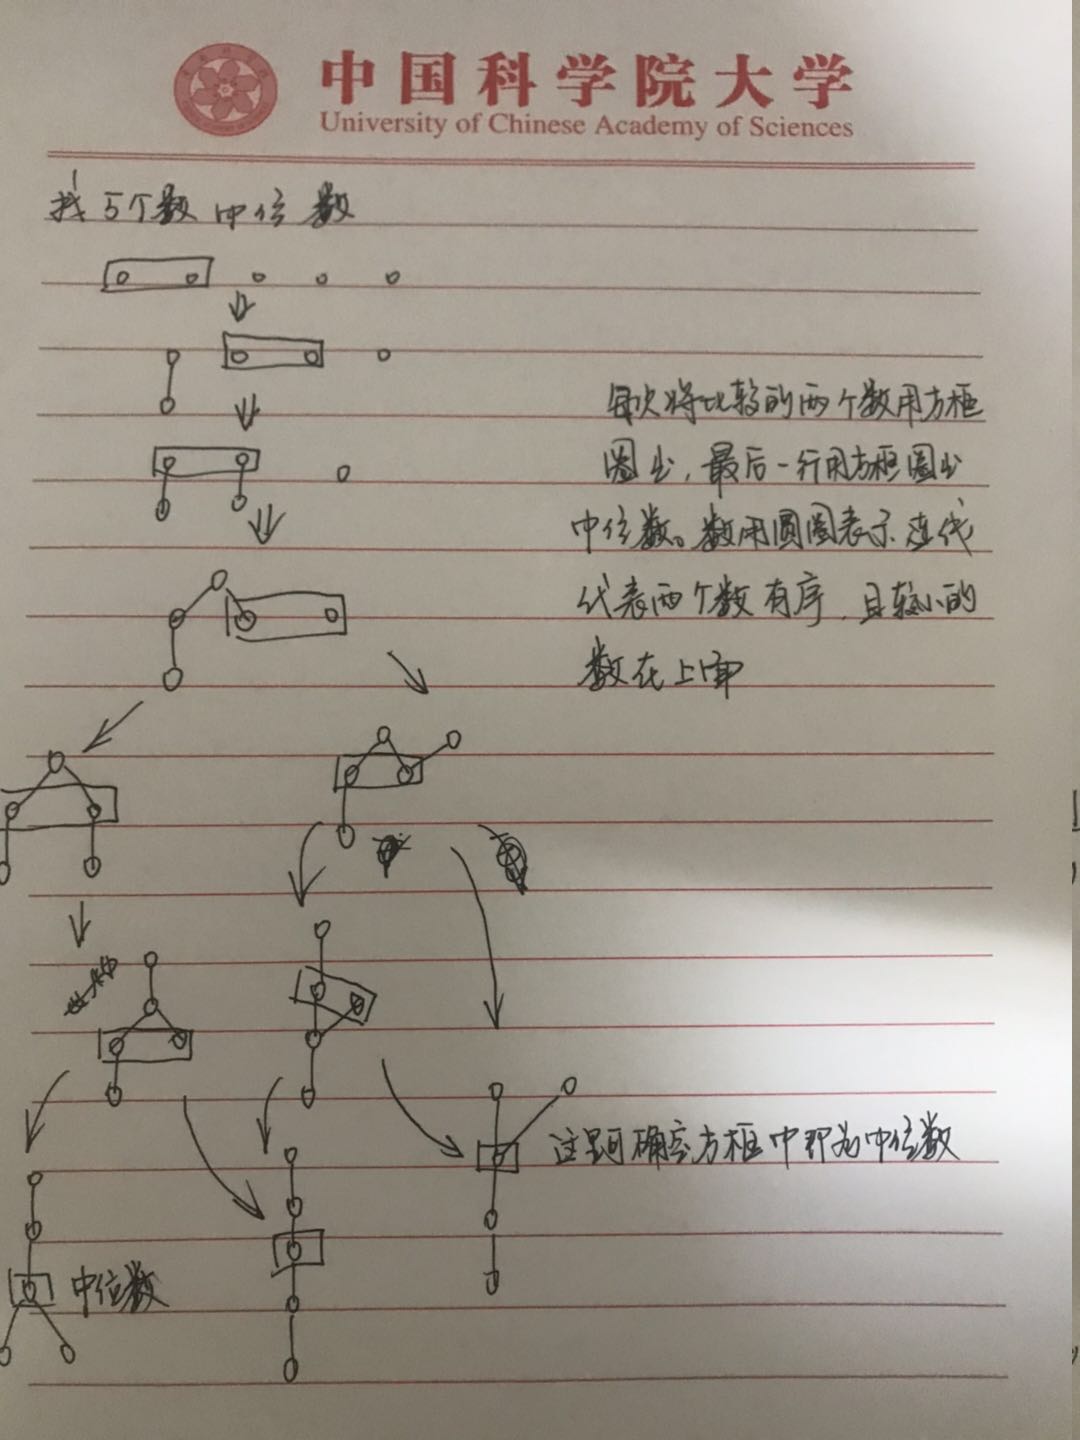 中国科学院大学
University of Chinese Academy of Sciences
找5个数中位数
每次将比较的两个数用方框
圈出，最后一行用方框圈出
中位数。数用圆圈表示 连线
代表两个数有序，且较小的
数在上面
这里可确定方框中即为中位数
中位数